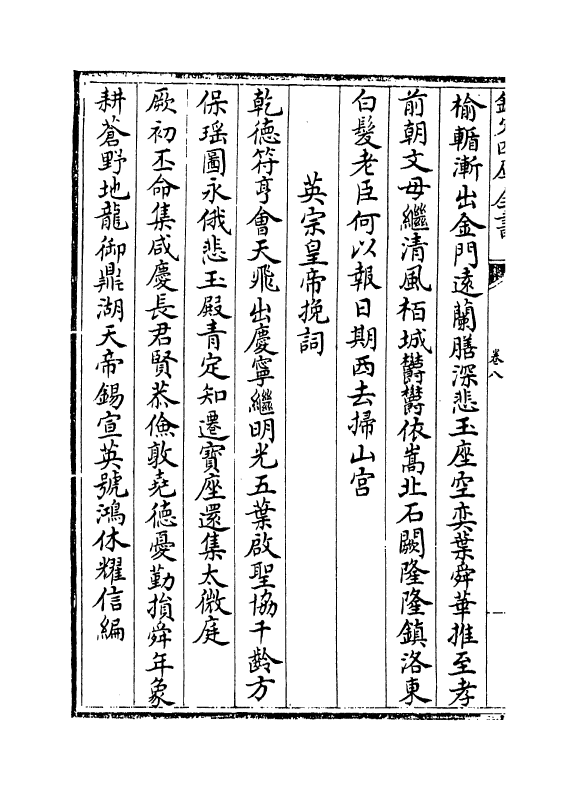 欽定四庫全書
卷八
榆輴漸出金門遠蘭膳深悲玉座空奕葉舜華推至孝
前朝文母繼清風栢城欝欝依嵩北石闕隆隆鎮洛東
白髮老臣何以報日期西去掃山宫
英宗皇帝挽詞
乾德符亨會天飛出慶寧繼明光五葉啟聖協千齡方
保瑶圖永俄悲玉殿青定知遷寶座還集太微庭
厥初丕命集咸慶長君賢恭儉敦堯德憂勤損舜年象
耕蒼野地龍御鼎湖天帝錫宣英號鴻休耀信編